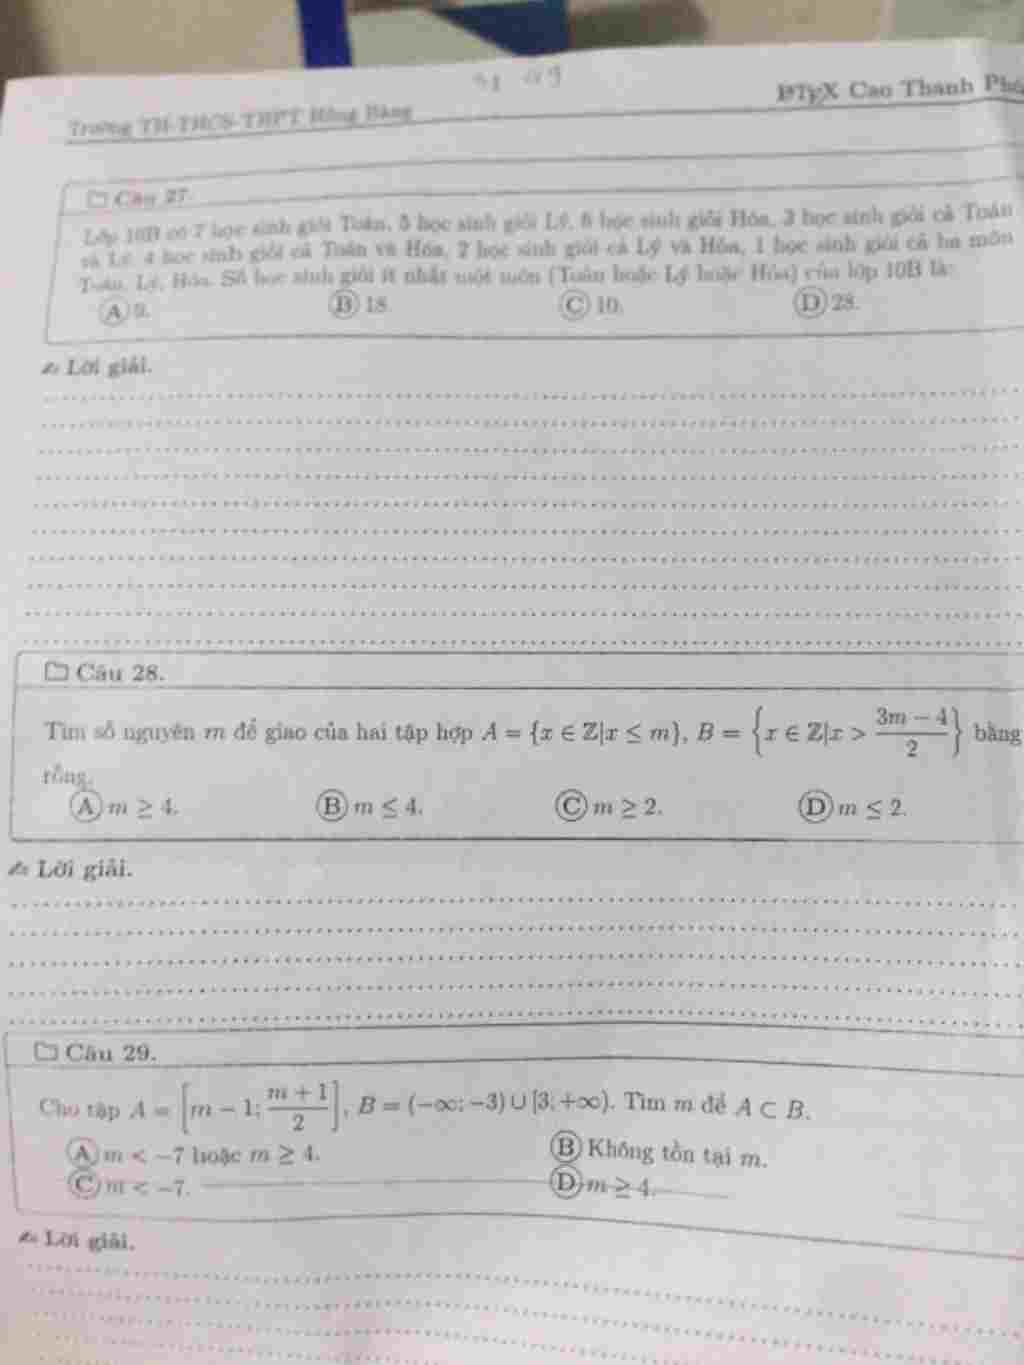 Trường TH-THCS-THPT Hồng Bàng
LATEX Cao Thanh Phú
Câu 27.
Lớp 10B có 7 học sinh giỏi Toán, 5 học sinh giỏi Lý, 6 học sinh giỏi Hóa, 3 học sinh giỏi cả Toán
và Lý, 4 học sinh giỏi cả Toán và Hóa, 2 học sinh giỏi cả Lý và Hóa, 1 học sinh giỏi cả ba môn
Toán, Lý, Hóa. Số học sinh giỏi ít nhất một môn (Toán hoặc Lý hoặc Hóa) của lớp 10B là:
A 9. B 18. C 10. D 28.
Lời giải.
Câu 28.
Tìm số nguyên m để giao của hai tập hợp A = {x ∈ ℤ|x ≤ m}, B = {x ∈ ℤ|x > (3m − 4)/2} bằng
rỗng.
A m ≥ 4. B m ≤ 4. C m ≥ 2. D m ≤ 2.
Lời giải.
Câu 29.
Cho tập A = [m − 1; (m + 1)/2], B = (−∞; −3) ∪ [3; +∞). Tìm m để A ⊂ B.
A m < −7 hoặc m ≥ 4. B Không tồn tại m.
C m < −7. D m ≥ 4.
Lời giải.